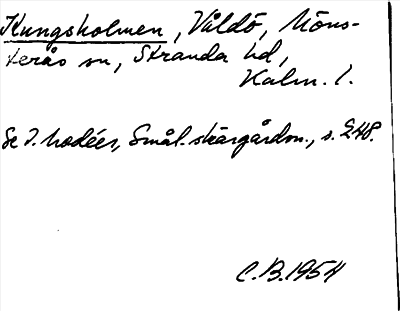 Kungsholmen, Våldö, Möns-
terås sn, Stranda hd,
Kalm. l.
Se I. Modéer, Smål. skärgårdsn., s. 248.
C.B. 1954